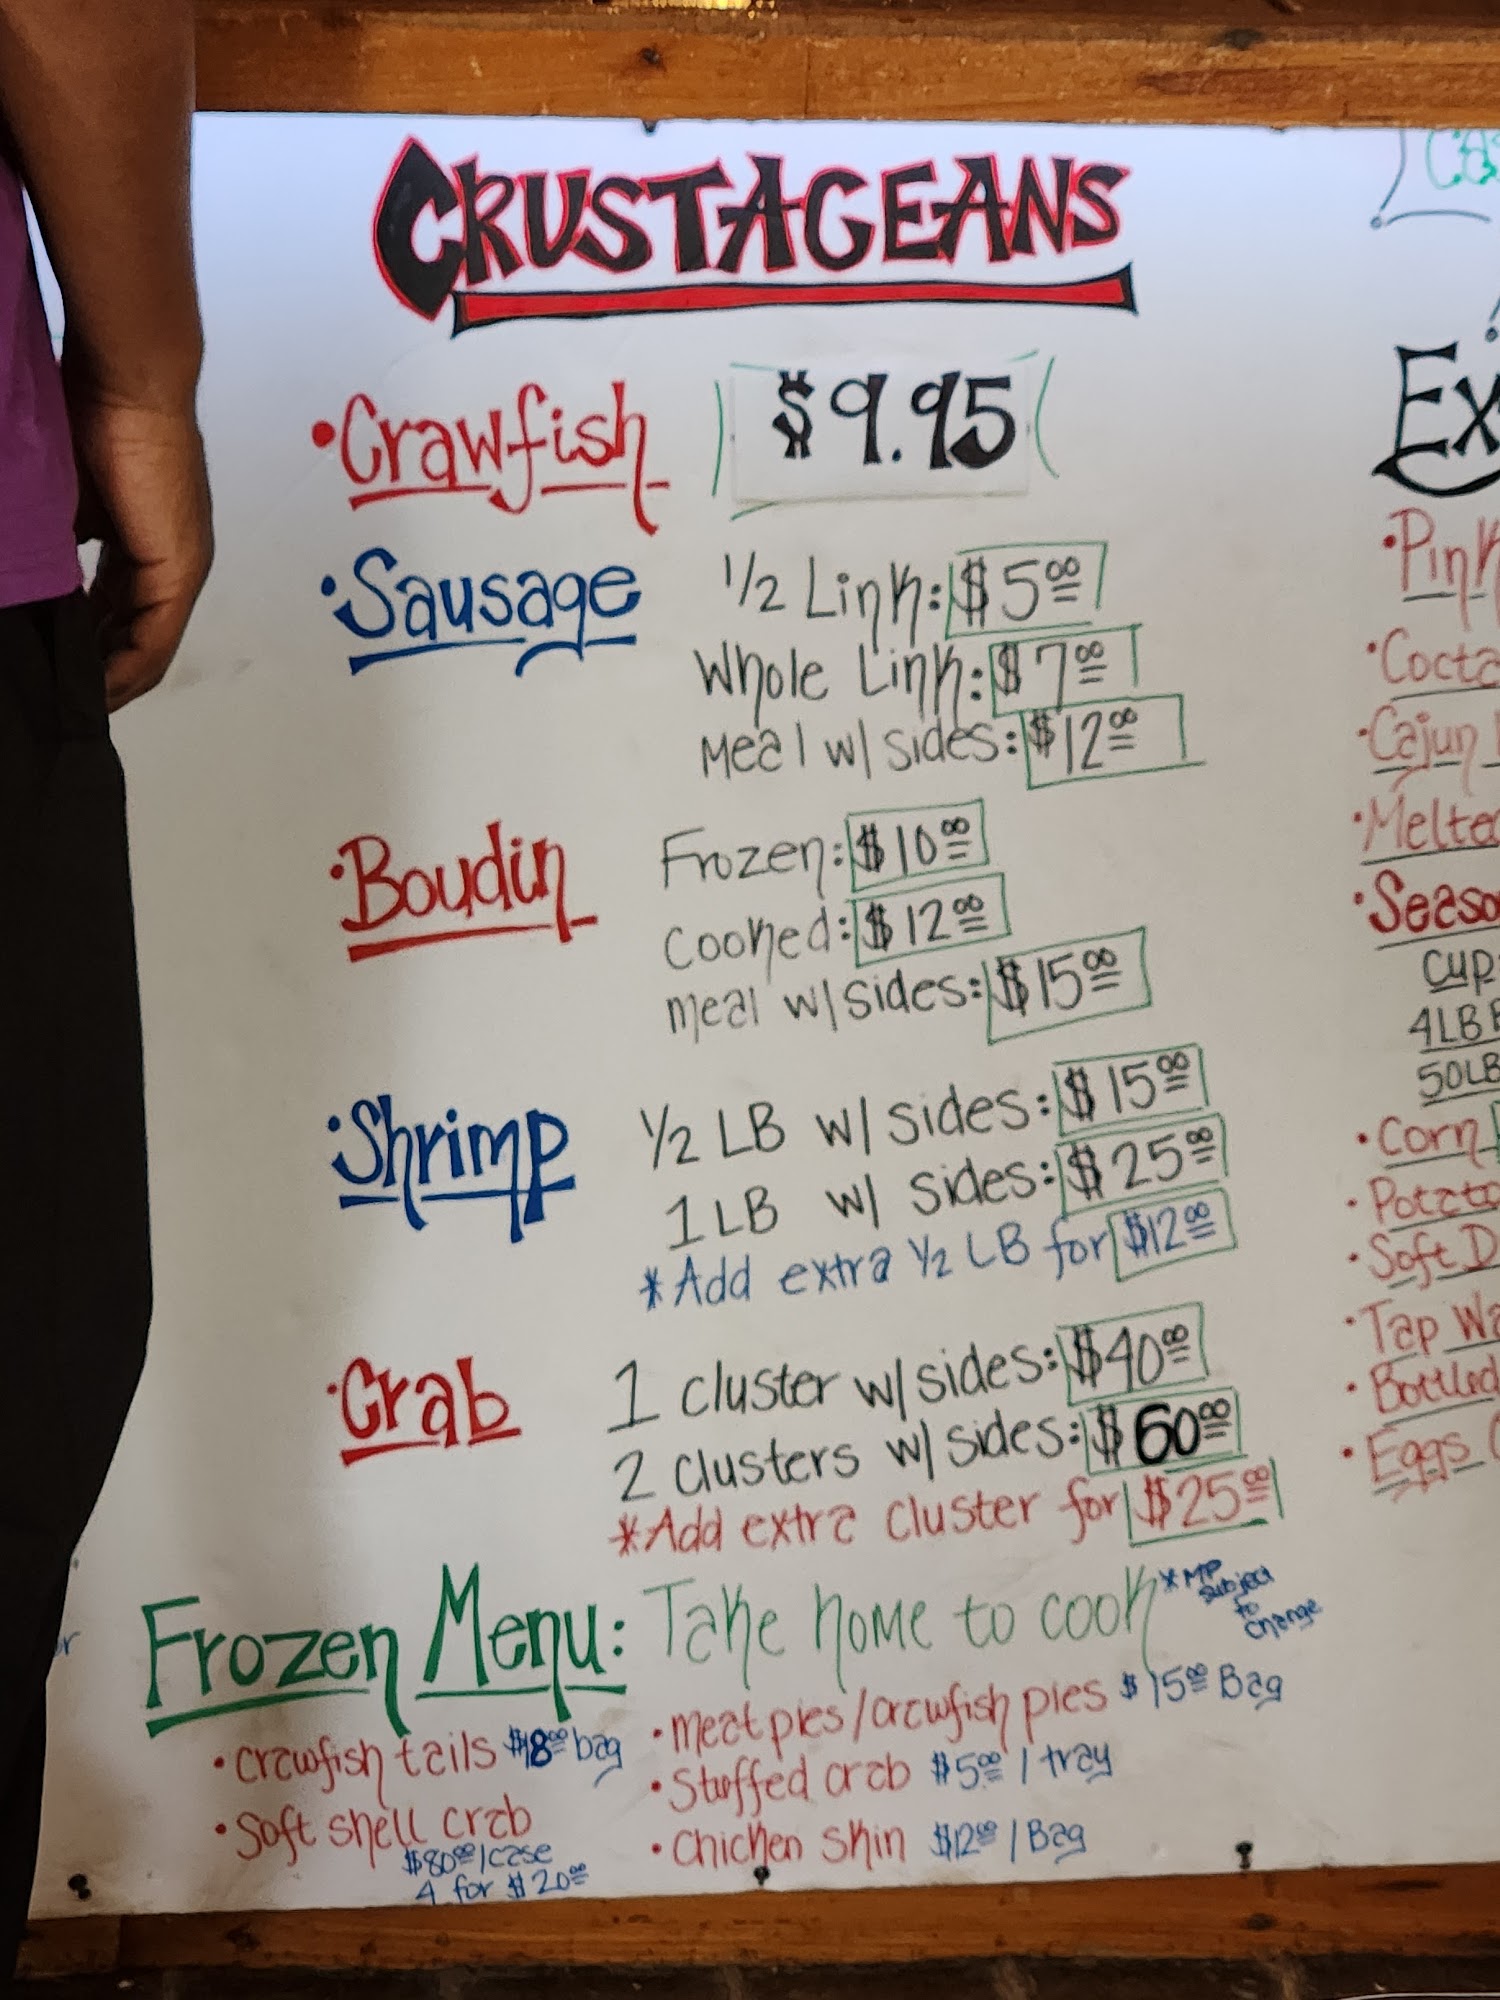 CRUSTACEANS
• Crawfish $9.95
• Sausage 1/2 Link: $5.00
Whole Link: $7.00
Meal w/ sides: $12.00
• Boudin Frozen: $10.00
Cooked: $12.00
meal w/ sides: $15.00
• Shrimp 1/2 LB w/ sides: $15.00
1 LB w/ sides: $25.00
*Add extra 1/2 LB for $12.00
• Crab 1 cluster w/ sides: $40.00
2 clusters w/ sides: $60.00
*Add extra cluster for $25.00
Frozen Menu: Take home to cook
* MP
subject
to
change
• crawfish tails $18.00 bag
• Soft shell crab
$80.00/case
4 for $20.00
• meat pies/crawfish pies $15.00 Bag
• Stuffed crab $5.00 / tray
• chicken skin $12.00 / Bag
Ex
• Pink
• Cockta
• Cajun
• Melted
• Seaso
Cup
4LB
50LB
• Corn
• Potato
• Soft D
• Tap Wa
• Bottled
• Eggs